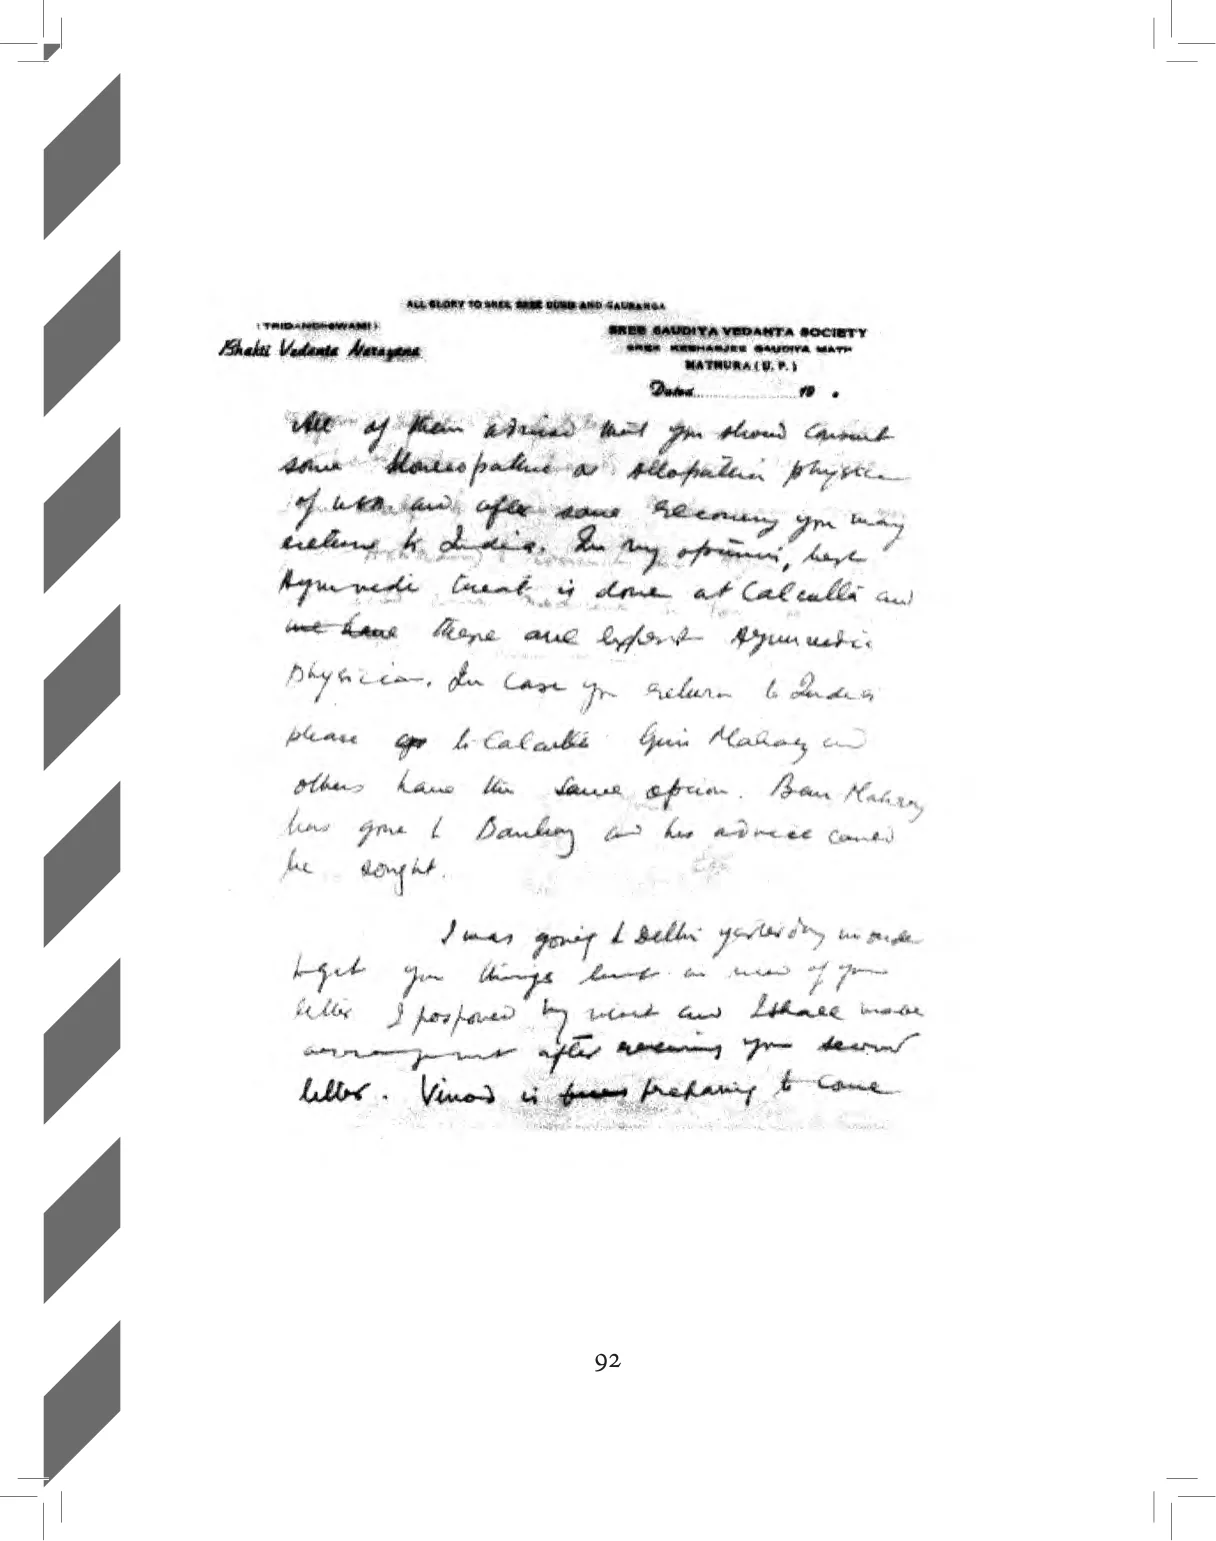 ALL GLORY TO SREE SREE GURU AND GAURANGA
(TRIDANDISWAMI)
Bhakti Vedanta Narayana
SREE GAUDIYA VEDANTA SOCIETY
SREE KESHABJEE GAUDIYA MATH
MATHURA (U. P.)
Dated..................19 .
All of them advised that you should consult
some Homeopathic or allopathic physician
of USA and after some recovery you may
return to India. In my opinion, best
Ayurvedic treat is done at Calcutta and
we have there are expert Ayurvedic
physician. In case you return to India
please go to Calcutta Giri Maharaj and
others have the same opinion. Ban Maharaj
has gone to Bombay and his advice could
be sought.
I was going to Delhi yesterday in order
to get your things but in view of your
letter I postponed my visit and I shall make
arrangement after receiving your second
letter. Vinod is preparing to come
92